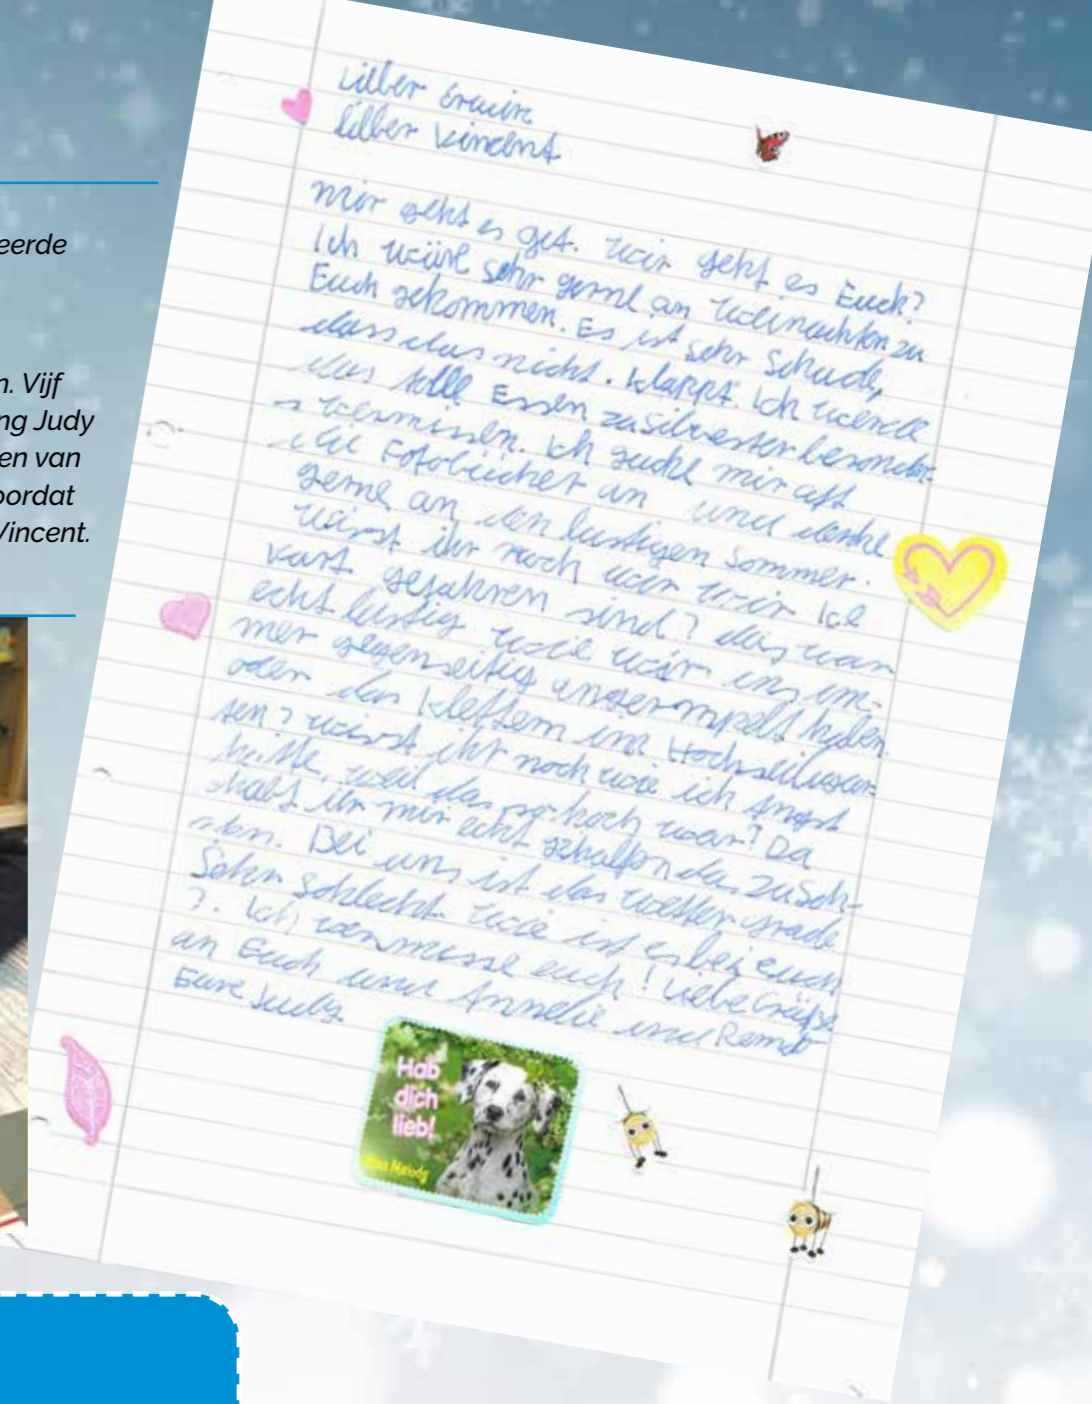 eerde
n. Vijf
ng Judy
en van
oordat
Vincent.
lieber Vincent
Mir geht es gut. Wir geht es Euch?
Ich würe sehr gerne an Weinachten zu
Euch gekommen. Es ist sehr Schade,
dass das nicht. klappt. Ich werde
das tolle Essen zu Silvester besonders
vermissen. Ich guche mir oft
die Fotobücher an und denke
gerne an den lustigen Sommer.
Wisst ihr noch wir wir Ice
kart gefahren sind? das war
echt lustig wie wir uns im-
mer gegenseitig angerempelt haben
oder das klettern im Hochseilgar-
ten? wisst ihr noch wie ich Angst
hatte, weil das so hoch war? Da
habt ihr mir echt geholfen das zu sch-
Sehr schlecht. wie ist es bei euch
?. Ich vermisse euch! Liebe Grüße
an Euch und Annelie und
Eure Judy.
Hab
dich
lieb!
Miss Melody